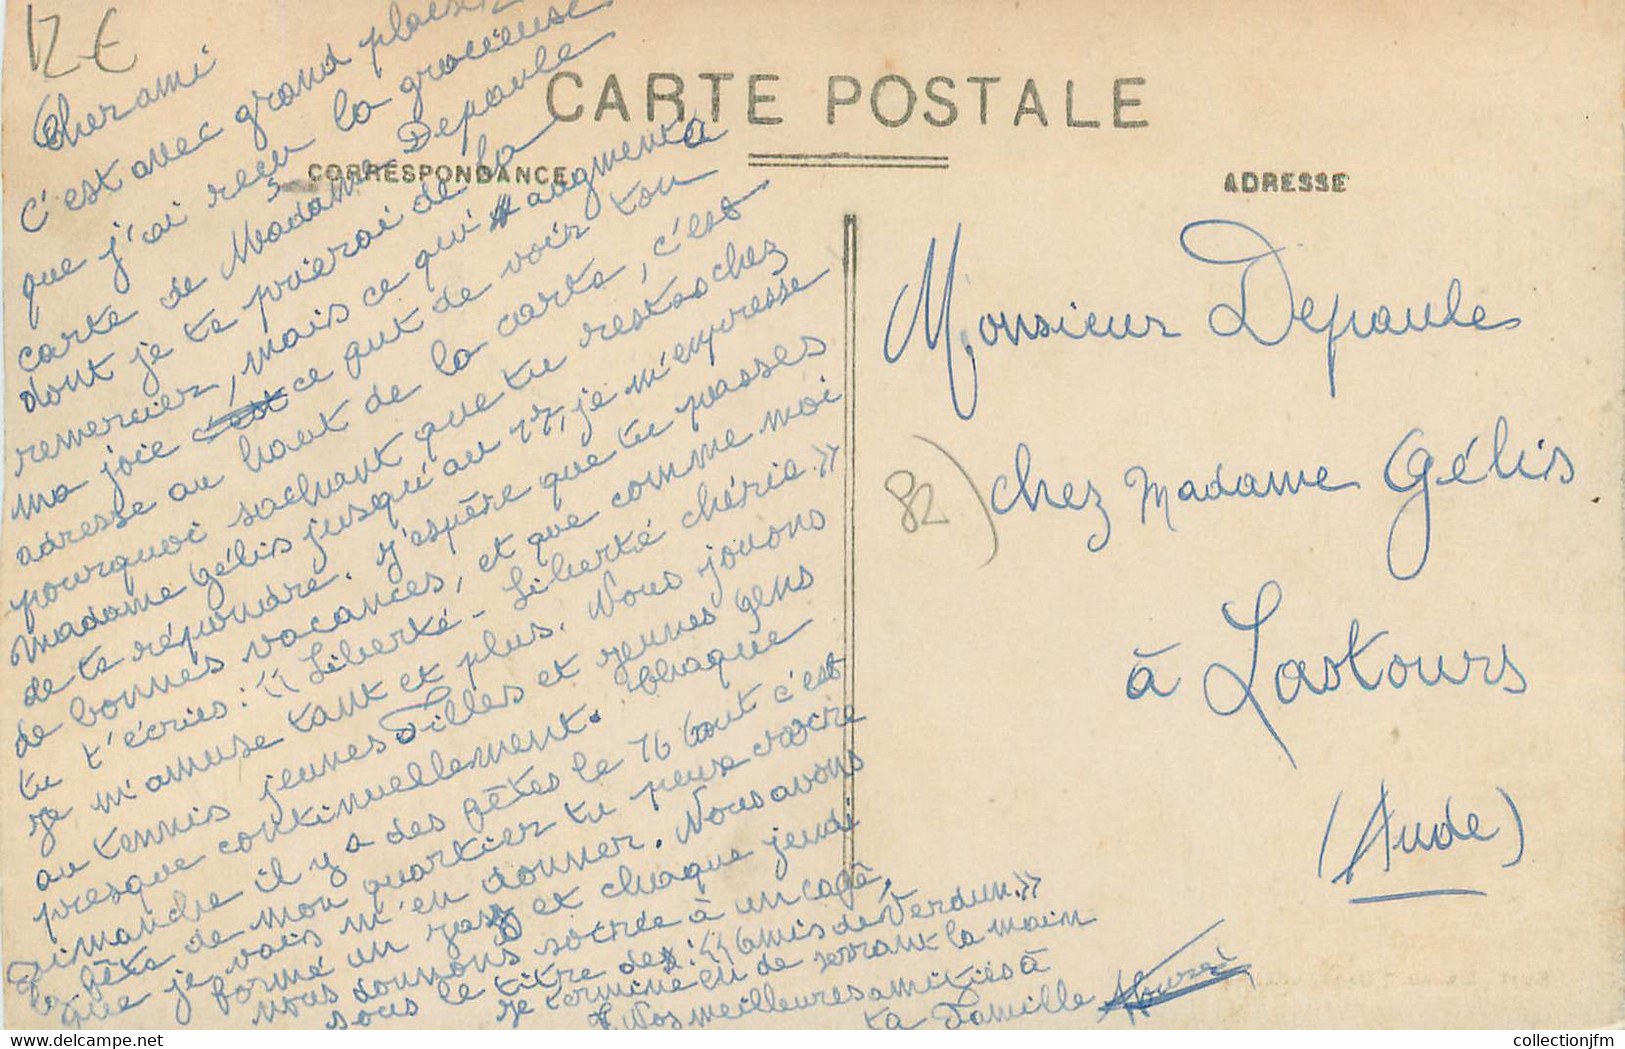 12 €
CARTE POSTALE
CORRESPONDANCE
ADRESSE
Cher ami
C'est avec grand plaisir
que j'ai reçu la gracieuse
carte de Madame Depaule
dont je te prierai de la
remercier, mais ce qui augmenta
ma joie c'est ce qut de voir ton
adresse au haut de la carte, c'est
pourquoi sachant que tu restes chez
Madame Gélis jusqu'au 17, je m'empresse
de te répondre. J'espère que tu passes
de bonnes vacances, et que comme moi
tu t'écries : "Liberté - Liberté chérie"
Je m'amuse tant et plus. Nous jouons
au tennis jeunes Filles et jeunes gens
presque continuellement. Chaque
Dimanche il y a des fêtes le 16 Août c'est
la fête de mon quartier tu peux croire
que je vais m'en donner. Nous avons
formé un jazz et chaque jeudi
nous donnons soirée à un café,
sous le titre des : "Amis de Verdun."
Je termine en te serrant la main
Nos meilleures amitiés à
ta Famille
Monsieur Depaule
82) chez Madame Gélis
à Lastours
(Aude)
collectionjfm